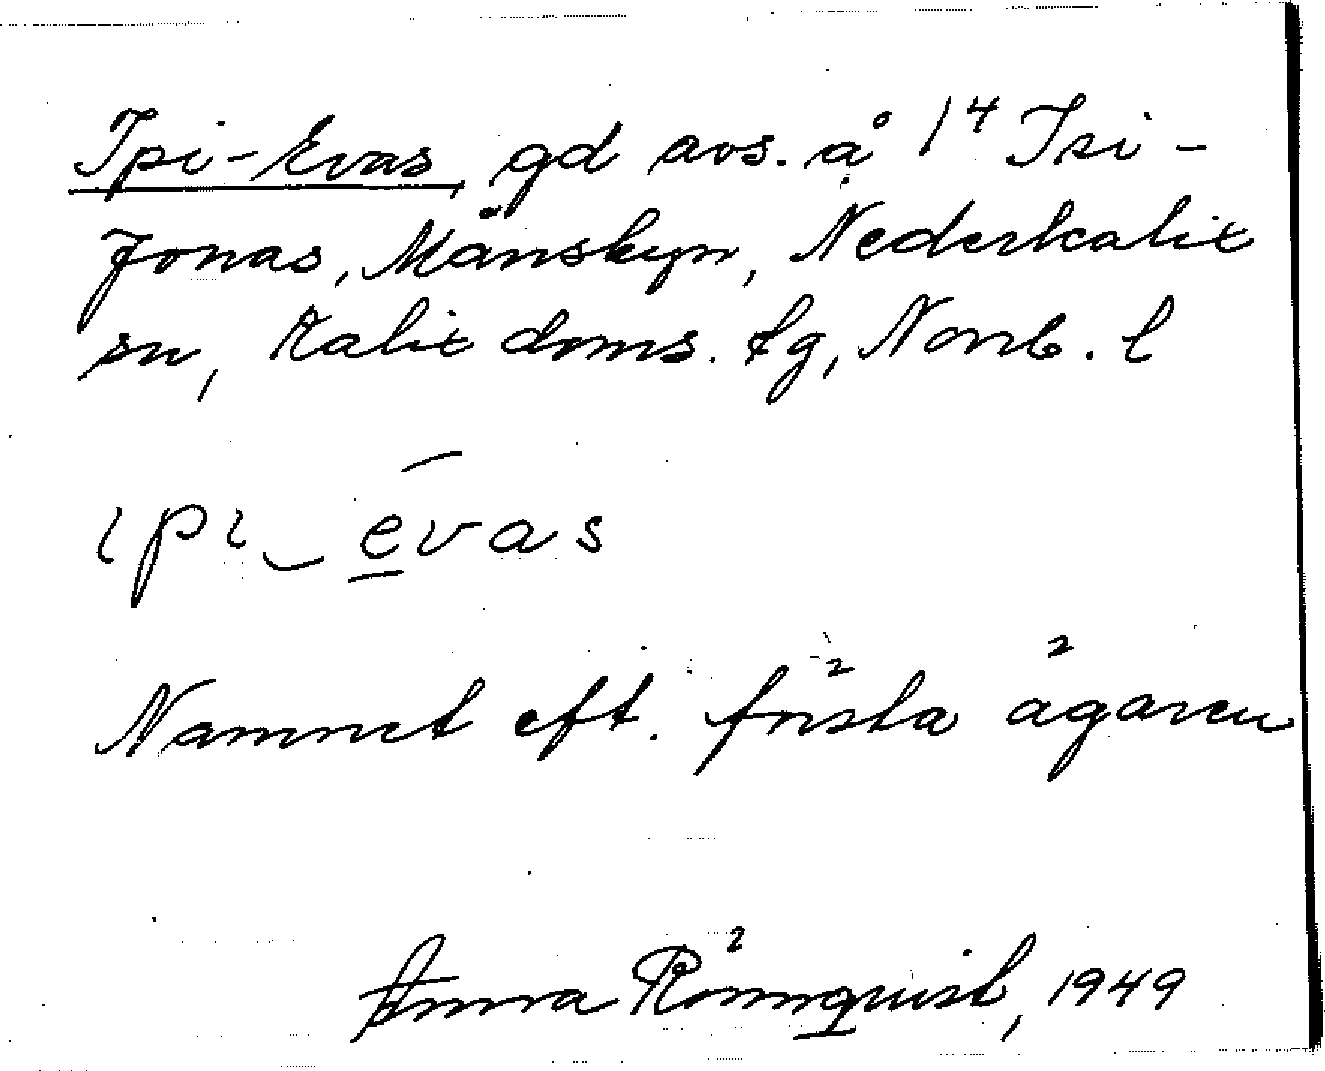 Ipi-Evas, gd avs. å 1⁴ Isi-
Jonas, Månskyn, Nederkalix
sn, Kalix doms. tg, Norrb. l
ıpı‿ēvas
Namnet eft. första ägaren
Anna Rönnquist, 1949